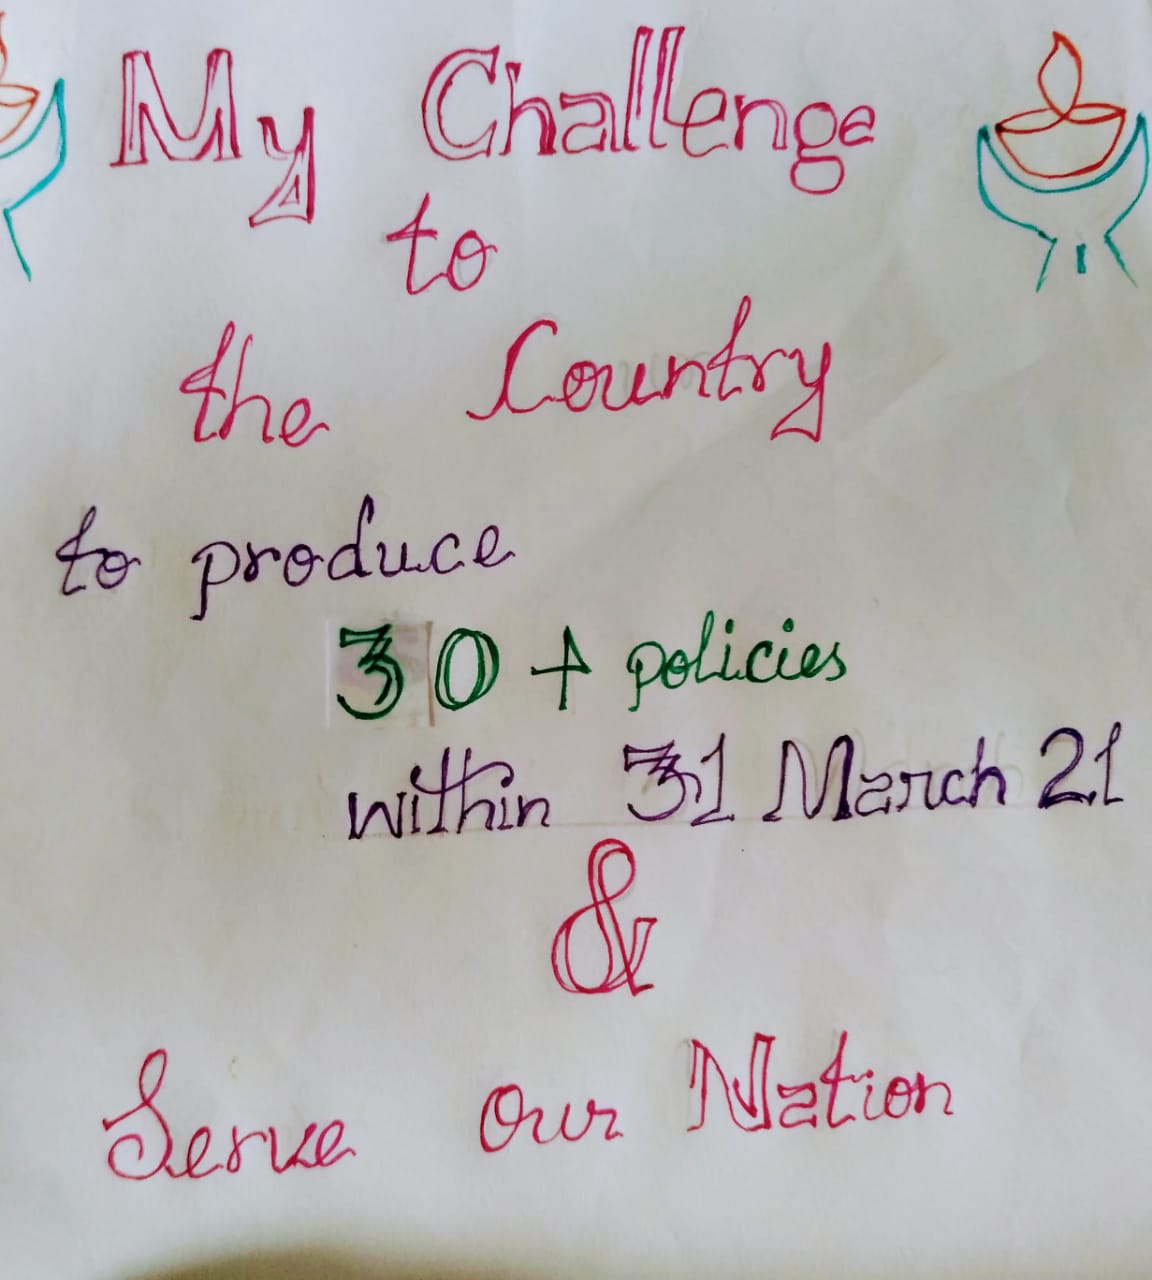 My Challenge
to
the Country
to produce
30 + policies
within 31 March 21
&
Serve Our Nation